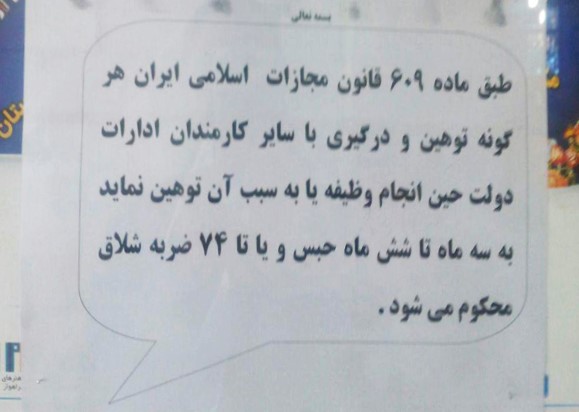 بسمه تعالی
طبق ماده ۶۰۹ قانون مجازات اسلامی ایران هر
گونه توهین و درگیری با سایر کارمندان ادارات
دولت حین انجام وظیفه یا به سبب آن توهین نماید
به سه ماه تا شش ماه حبس و یا تا ۷۴ ضربه شلاق
محکوم می شود .